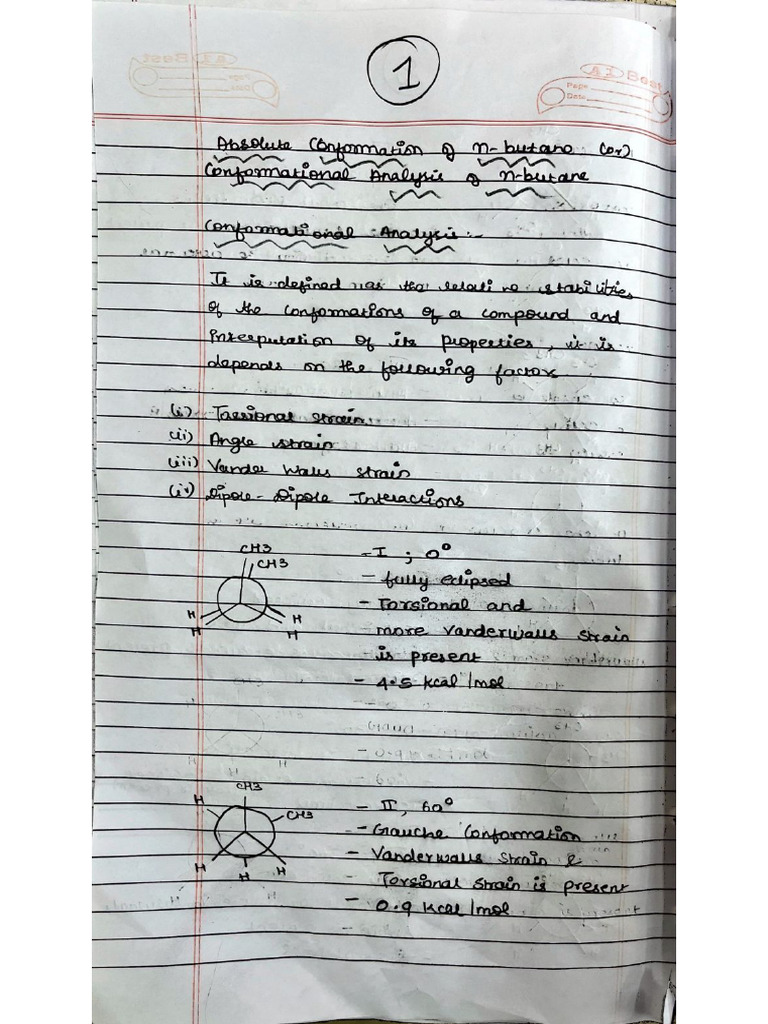 1
A1 Best
Page
Date
Absolute Conformation of n-butane (or)
Conformational Analysis of n-butane
Conformational Analysis :-
It is defined as the relative stabilities
of the conformations of a compound and
Interputation of its properties, it is
depends on the following factors
(i) Tarsional strain
(ii) Angle strain
(iii) Vander walls strain
(iv) Dipole-Dipole Interactions
CH3
CH3
H
H
H
H
- I ; 0°
- fully eclipsed
- Torsional and
- more vanderwalls strain
is present
- 4.5 kcal/mol
CH3
H
CH3
H
H
H
- II, 60°
- Gauche Conformation
- Vanderwalls strain &
- Torsional strain is present
- 0.9 kcal/mol
-